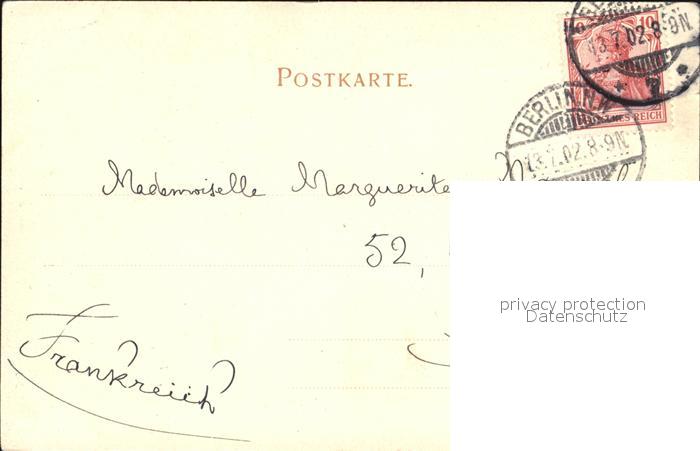 POSTKARTE.
10
13.7.02.8-9N.
DEUTSCHES REICH
BERLIN.N.W
13.7.02.8-9N.
Mademoiselle Marguerite
52,
privacy protection
Datenschutz
Frankreich